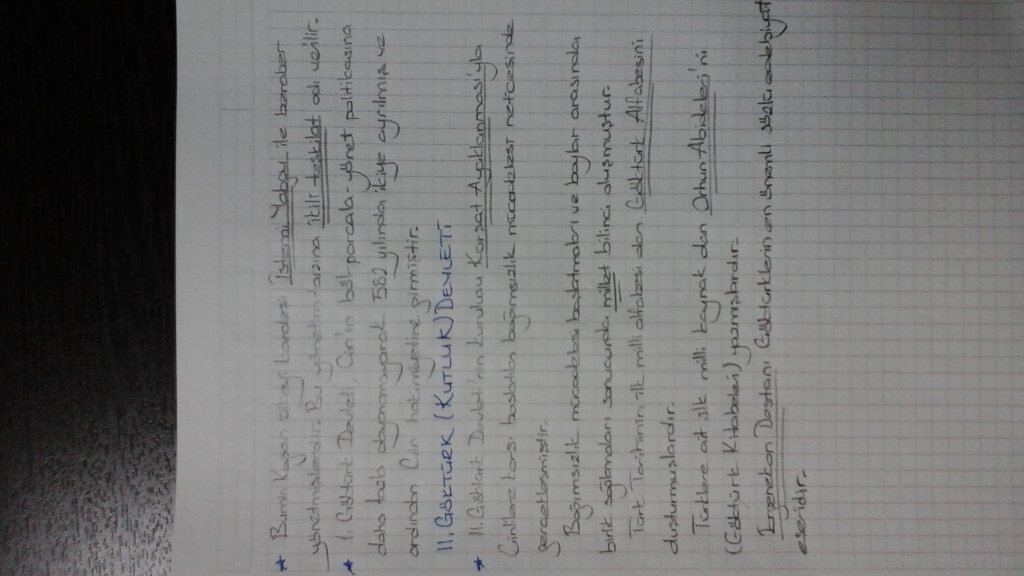 ★ Bumin Kağan ülkeyi kardeşi İstemi Yabgu ile beraber
yönetmişlerdir. Bu yönetim tarzına ikili teşkilat adı verilir.
★ I. Göktürk Devleti, Çin'in böl-parçala-yönet politikasına
daha fazla dayanamayarak 582 yılında ikiye ayrılmış ve
ardından Çin hakimiyetine girmiştir.
II. GÖKTÜRK (KUTLUK) DEVLETİ
★ II. Göktürk Devleti'nin kuruluşu Kürşat Ayaklanması'yla
Çinlilere karşı başlatılan bağımsızlık mücadelesi neticesinde
gerçekleşmiştir.
Bağımsızlık mücadelesi başlatmaları ve boylar arasında
birlik sağlamaları sonucunda millet bilinci oluşmuştur.
Türk Tarihinin ilk milli alfabesi olan Göktürk Alfabesini
oluşturmuşlardır.
Türklere ait ilk milli kaynak olan Orhun Abideleri'ni
(Göktürk Kitabeleri) yazmışlardır.
Ergenekon Destanı Göktürklerin en önemli sözlü edebiyat
eseridir.